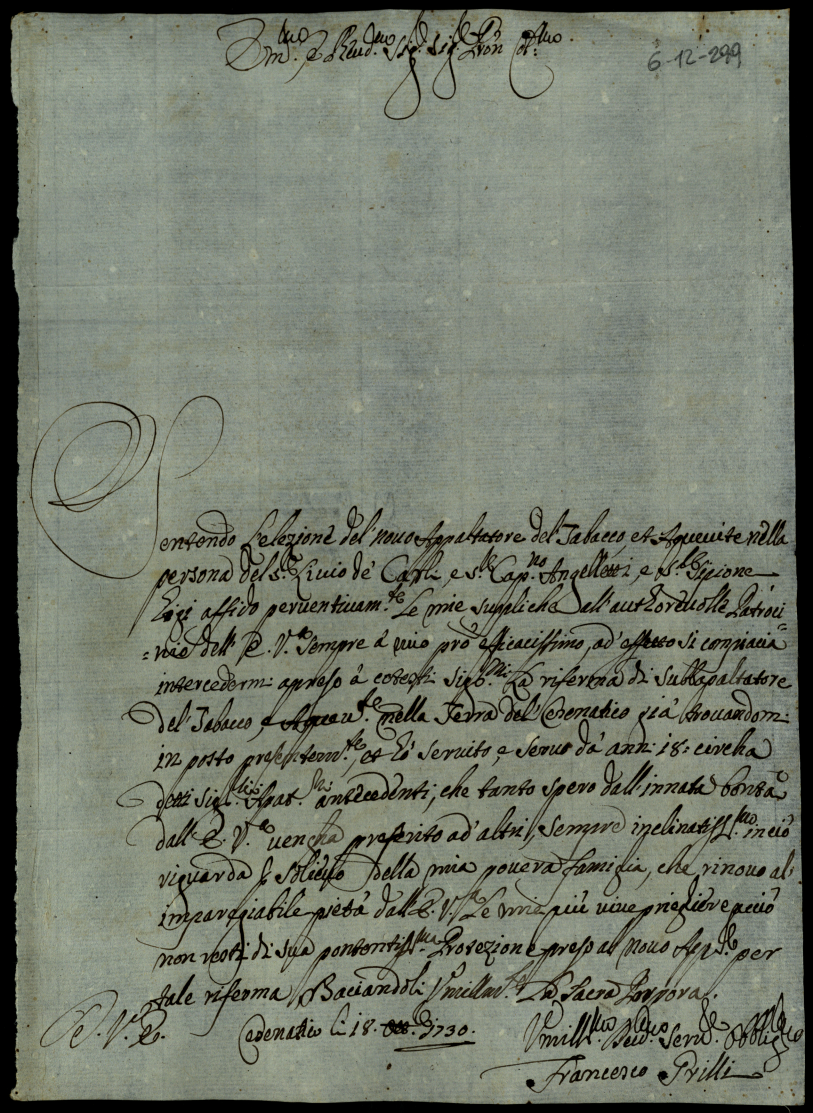 Em.mo e Reud.mo Sig.r Sig.r Pron Col.mo
6-12-299
Sentendo L'elezione del nouo Appaltatore del Tabacco et Aqueuite nella
persona del s.r Liuio de Carli, e s.r Cap.no Angelletti, e s.r Sipione
Gigi affido peruentiuam.te Le mie suppliche all'authoreuolle Patroci=
=nio dell' E. V.a sempre à mio prò efficacissimo, ad'effetto si compiacia
intercedermi apreso à cotesti Sig.ri La riferma di subbapaltatore
del Tabacco, e Aqeau.te nella Terra del Cesenatico già trouandomi
in posto presentem.te, et hò seruito, e seruo da anni 18: circha
detti Sig.ri Apat.ri antecedenti, che tanto spero dall'innata bontà
dall' E. V.a uencha preferito ad'altri, sempre inclinatiss.mo in ciò
riguarda il solieuo della mia pouera famiglia, che rinouo al'
imparegiabile pietà dall'E. V.a Le mie più uiue prieghiere acciò
non resti di sua potentiss.ma Protezione preso al nouo per
tale riferma Baciandoli Vmilm.te La Sacra Porpora.
D. V.a E. Cesenatico li 18. 1730. Vmill.mo Seru.re Obblig.mo
Francesco Prilli